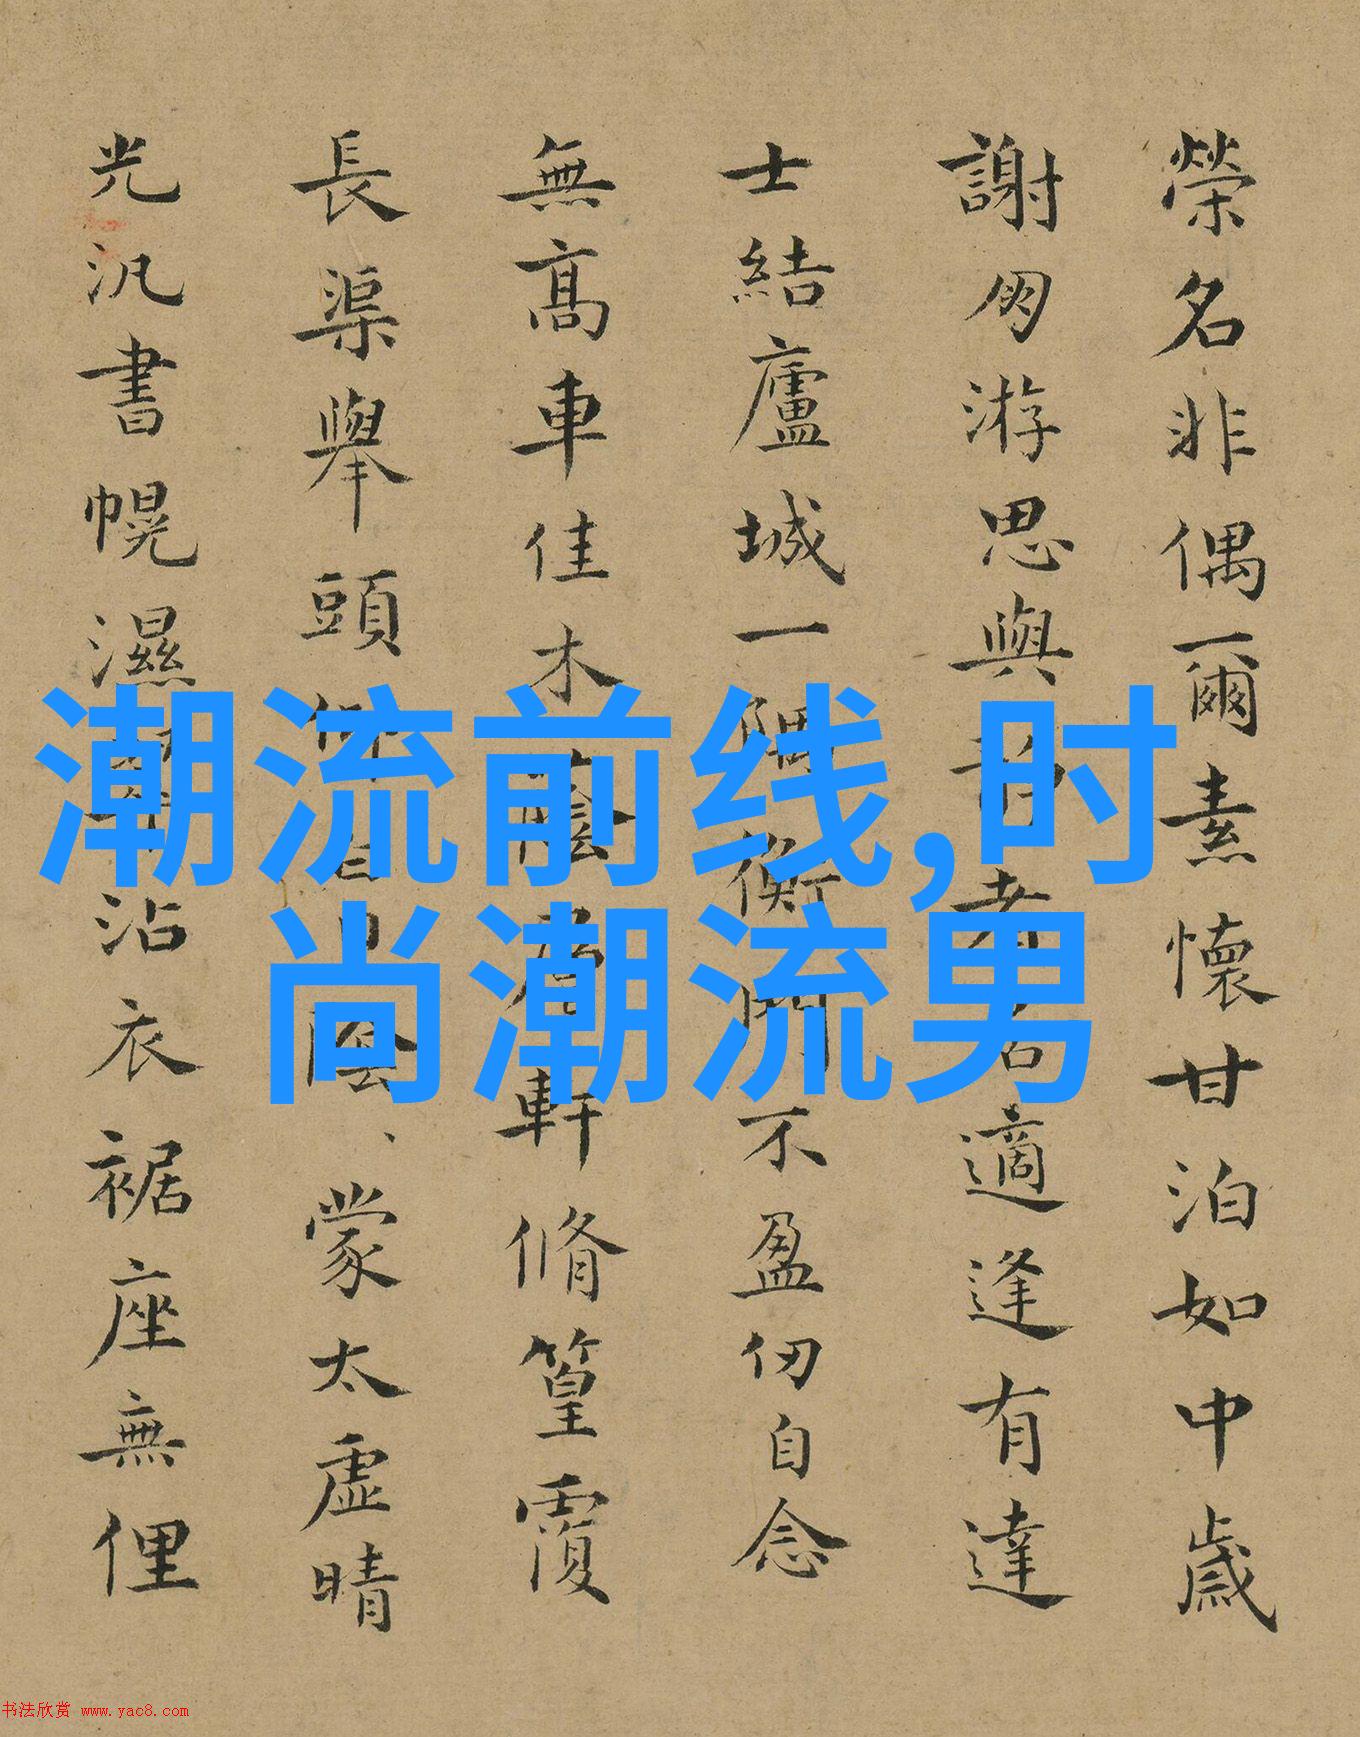 榮名非偶爾素懷甘泊如中歲
謝朋游思與昔者適逢有達
士結廬城一隅衡門不盈仞自念
無高車佳木蔭軒脩篁覆
長渠舉頭仰陰、蒙太虛晴
光汎書幌濕翠沾衣裾座無俚
潮流前线,时
尚潮流男
书法欣赏 www.yac8.com